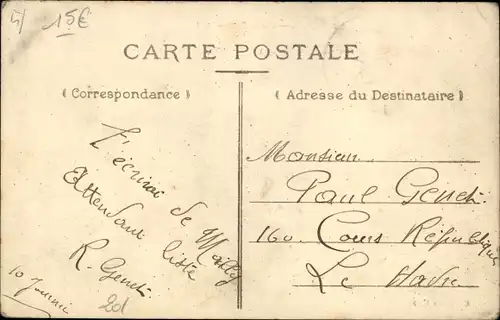 15€
CARTE POSTALE
( Correspondance )
( Adresse du Destinataire )
T'écrirai de Mailly
Attendant liste
R. Genet
10
20
Monsieur
Paul Genet
160 Cours République
Le Havre